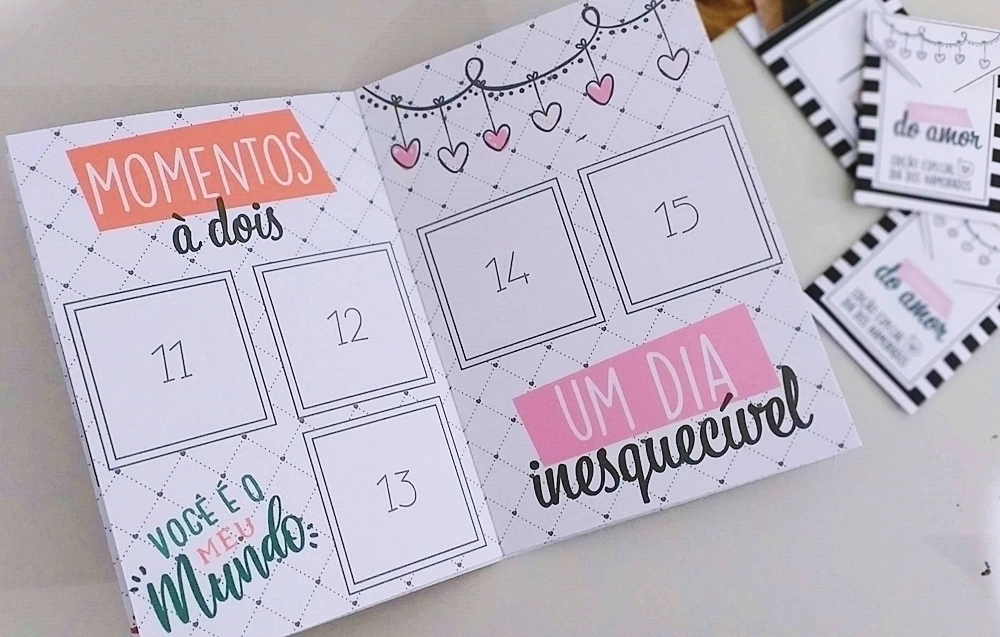 MOMENTOS
à dois
11
12
13
VOCÊ É O
MEU
Mundo
14
15
UM DIA
inesquecível
do amor
EDIÇÃO ESPECIAL
DIA DOS NAMORADOS
do amor
EDIÇÃO ESPECIAL
DIA DOS NAMORADOS